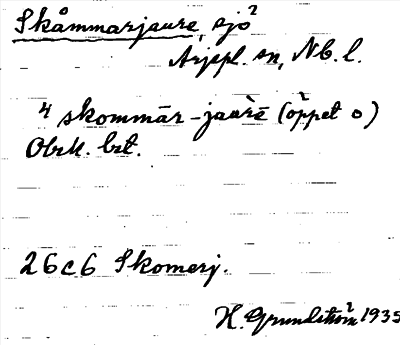 Skåmmarjaure, sjö
Arjepl. sn, Nb. l.
4 skommār-jaurē (öppet o)
Obek. bet.
26c6 Skomerj.
H. Grundström 1935